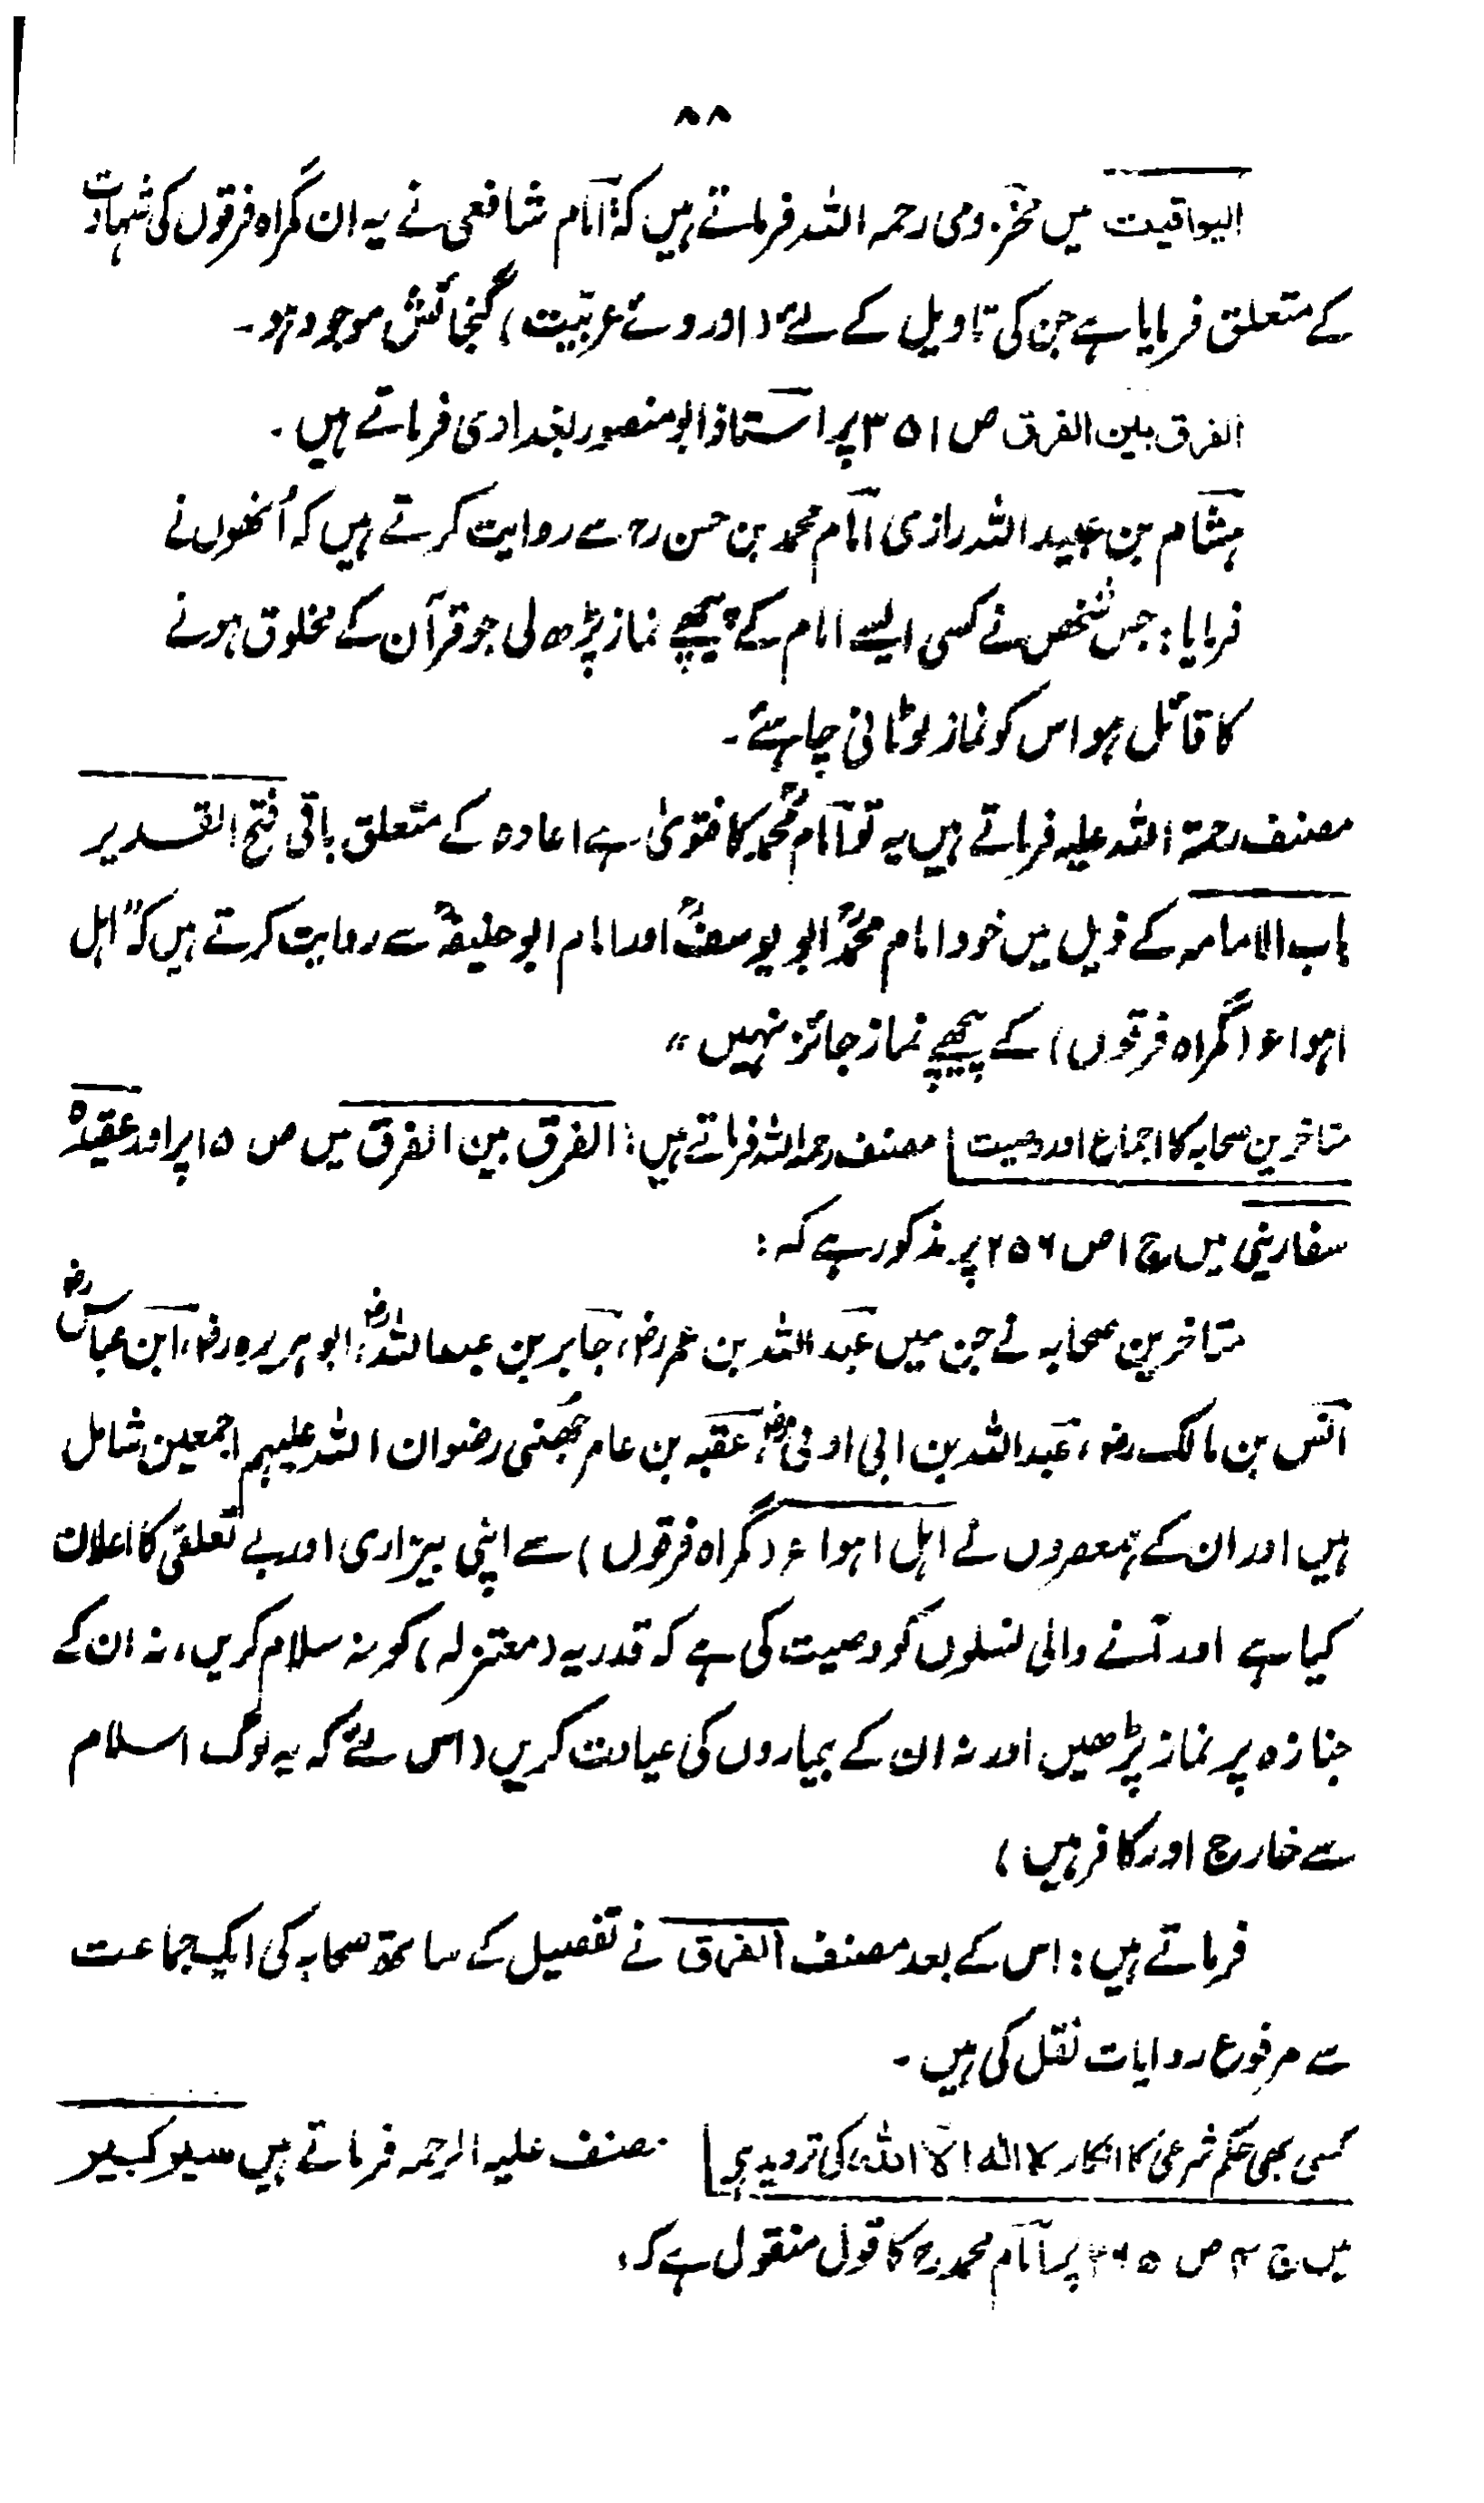 ۸۸
الیواقیت میں مخزومی رحمہ اللہ فرماتے ہیں کہ: امام شافعی نے یہ ان گمراہ فرقوں کی شہادت
کے متعلق فرمایا ہے جن کی تاویل کے لئے (از روئے عربیت) گنجائش موجود ہو۔
الفرق بین الفرق ص ۳۵۱ پر استاذ ابو منصور بغدادی فرماتے ہیں۔
ہشام بن عبید اللہ رازی امام محمد بن حسن رح سے روایت کرتے ہیں کہ اُنھوں نے
فرمایا: جس شخص نے کسی ایسے امام کے پیچھے نماز پڑھ لی جو قرآن کے مخلوق ہونے
کا قائل ہو اس کو نماز لوٹانی چاہئے۔
مصنف رحمۃ اللہ علیہ فرماتے ہیں یہ تو امام محمدؒ کا فتویٰ ہے اعادہ کے متعلق باقی فتح القدیر
باب الامامہ کے ذیل میں خود امام محمدؒ ابو یوسفؒ اور امام ابو حنیفہؒ سے روایت کرتے ہیں کہ "اہل
اہواء (گمراہ فرقوں) کے پیچھے نماز جائز نہیں"
متاخرین صحابہ کا اجماع اور وصیت مصنف رحمہ اللہ فرماتے ہیں: الفرق بین الفرق میں ص ۱۵ پر اور عقیدہ
سفارینی میں ج ۱ ص ۲۵۶ پر مذکور ہے کہ:
متاخرین صحابہ نے جن میں عبد اللہ بن عمر رض، جابر بن عبد اللہ رض، ابو ہریرہ رض، ابن عباس رض
انس بن مالک رض، عبد اللہ بن ابی اوفی رض، عقبہ بن عامر جُھنی رضوان اللہ علیہم اجمعین شامل
ہیں اور ان کے ہمعصروں نے اہل اہواء (گمراہ فرقوں) سے اپنی بیزاری اور بے تعلقی کا اعلان
کیا ہے اور آنے والی نسلوں کو وصیت کی ہے کہ قدریہ (معتزلہ) کو نہ سلام کریں، نہ ان کے
جنازہ پر نماز پڑھیں اور نہ ان کے بیماروں کی عیادت کریں (اس لئے کہ یہ لوگ اسلام
سے خارج اور کافر ہیں)
فرماتے ہیں: اس کے بعد مصنف الفرق نے تفصیل کے ساتھ صحابہ کی ایک جماعت
سے مرفوع روایات نقل کی ہیں۔
کسی بھی حکم شرعی کا انکار لا الٰہ الا اللہ کی تردید ہے مصنف علیہ الرحمہ فرماتے ہیں سیر کبیر
میں ج ص پر امام محمد رح کا قول منقول ہے کہ: